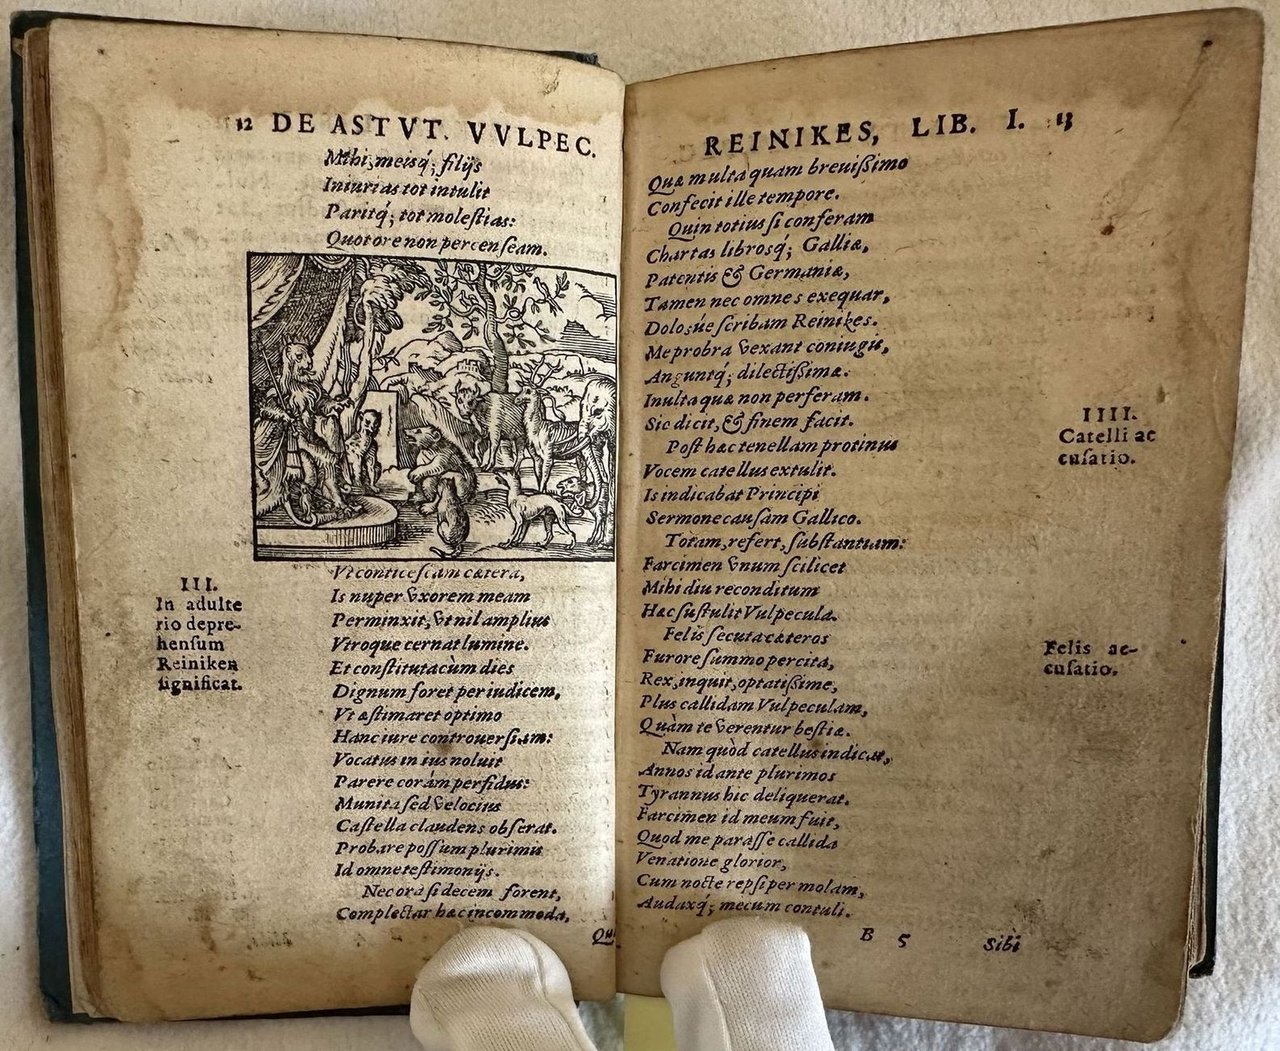 12 DE ASTVT. VVLPEC.
Mihi, meisq́; filijs
Iniurias tot intulit
Paritq́; tot molestias:
Quot ore non percenseam.
III.
In adulte
rio depre-
hensum
Reiniken
significat.
Vt conticescam cætera,
Is nuper vxorem meam
Perminxit, vt nil amplius
Vtroque cernat lumine.
Et constituta cùm dies
Dignum foret per iudicem,
Vt æstimaret optimo
Hanc iure controuersiam:
Vocatus in ius noluit
Parere corám perfidus:
Munita sed velocius
Castella claudens obserat.
Probare possum plurimis
Id omne testimonijs.
Nec ora si decem forent,
Complectar hæc incommoda,
REINIKES, LIB. I. 13
Quæ multa quam breuißimo
Confecit ille tempore.
Quin totius si conferam
Chartas librosq́; Galliæ,
Patentis & Germaniæ,
Tamen nec omnes exequar,
Dolosúe scribam Reinikes.
Me probra vexant coniugis,
Anguntq́; dilectißimæ.
Inulta quæ non perferam.
Sic dicit, & finem facit.
IIII.
Catelli ac
cusatio.
Post hæc tenellam protinus
Vocem catellus extulit.
Is indicabat Principi
Sermone causam Gallico.
Totam, refert, substantiam:
Farcimen vnum scilicet
Mihi diu reconditum
Hæc sustulit Vulpecula.
Felis ac-
cusatio.
Felis secuta cæteros
Furore summo percita,
Rex, inquit, optatißime,
Plus callidam Vulpeculam,
Quàm te verentur bestiæ.
Nam quòd catellus indicat,
Annos id ante plurimos
Tyrannus hic deliquerat.
Farcimen id meum fuit,
Quod me parasse callida
Venatione glorior,
Cum nocte repsi per molam,
Audaxq́; mecum contuli.
B 5 Sibi